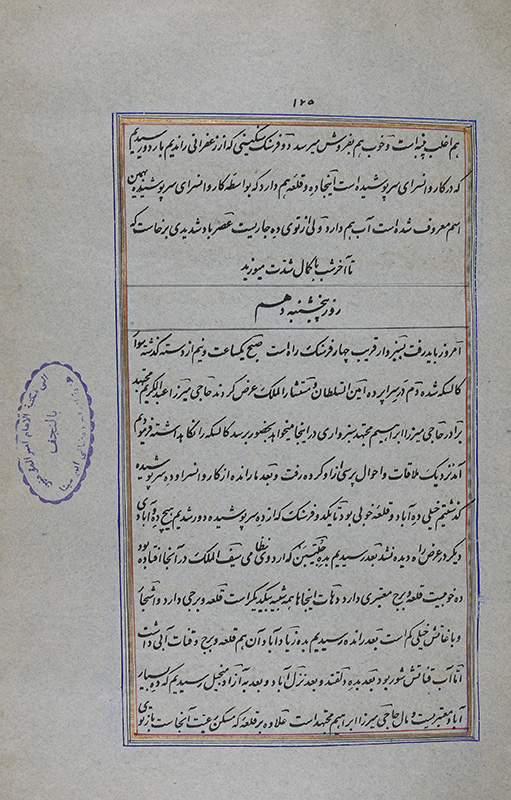 ۱۲۵
هم اغلب پنبه است و خوب هم بفروش میرسد دو فرسنگ سنگینی که از زعفرانی راندیم باز دور رسیدیم
که در کاروانسرای سرپوشیده است اینجا ده و قلعه هم دارد که بواسطه کاروانسرای سرپوشیده بهمین
اسم معروف شده است آب هم دارد ولی از توی ده جاریست عصر باد شدیدی برخاست که
تا آخر شب با کمال شدت میوزید
روز پنجشنبه دهم
امروز باید رفت بسبزوار قریب چهار فرسنگ راه است صبح یکساعت و نیم از دسته گذشته سوار
کالسکه شده دم در سراپرده امین السلطان و مستشار الملک عرض کردند حاجی میرزا عبدالکریم مجتهد
برادر حاجی میرزا ابراهیم مجتهد سبزواری در اینجا میخواهد بحضور برسد کالسکه را نگاهداشته فرمودیم
آمد نزدیک ملاقات و احوال پرسی از او کرده رفت و بعد ما رانده از کاروانسرا و ده سرپوشیده
گذشتیم خیلی ده آباد و قلعه خوبی بود تا یکدو فرسنگ که از ده سرپوشیده دور شدیم هیچ ده و آبادی
دیگر در عرض راه دیده نشد بعد رسیدیم بده که اردوی نظامی سیف الملک در آنجا افتاده بود
ده خوبیست قلعه و برج معتبری دارد دهات اینجاها همه شبیه بیکدیگر است قلعه و برجی دارد و اشجار
و باغاتش خیلی کم است بعد رانده رسیدیم بده زیادآباد آن هم قلعه و برج و قنات آبی داشت
اما آب قناتش شور بود بعد بده دلقند و بعد نزل آباد و بعد به آزاد منجیل رسیدیم که ده بسیار
آباد معتبریست و مال حاجی میرزا ابراهیم مجتهد است علاوه بر قلعه که مسکن رعیت آنجاست باز توی
بالنجف